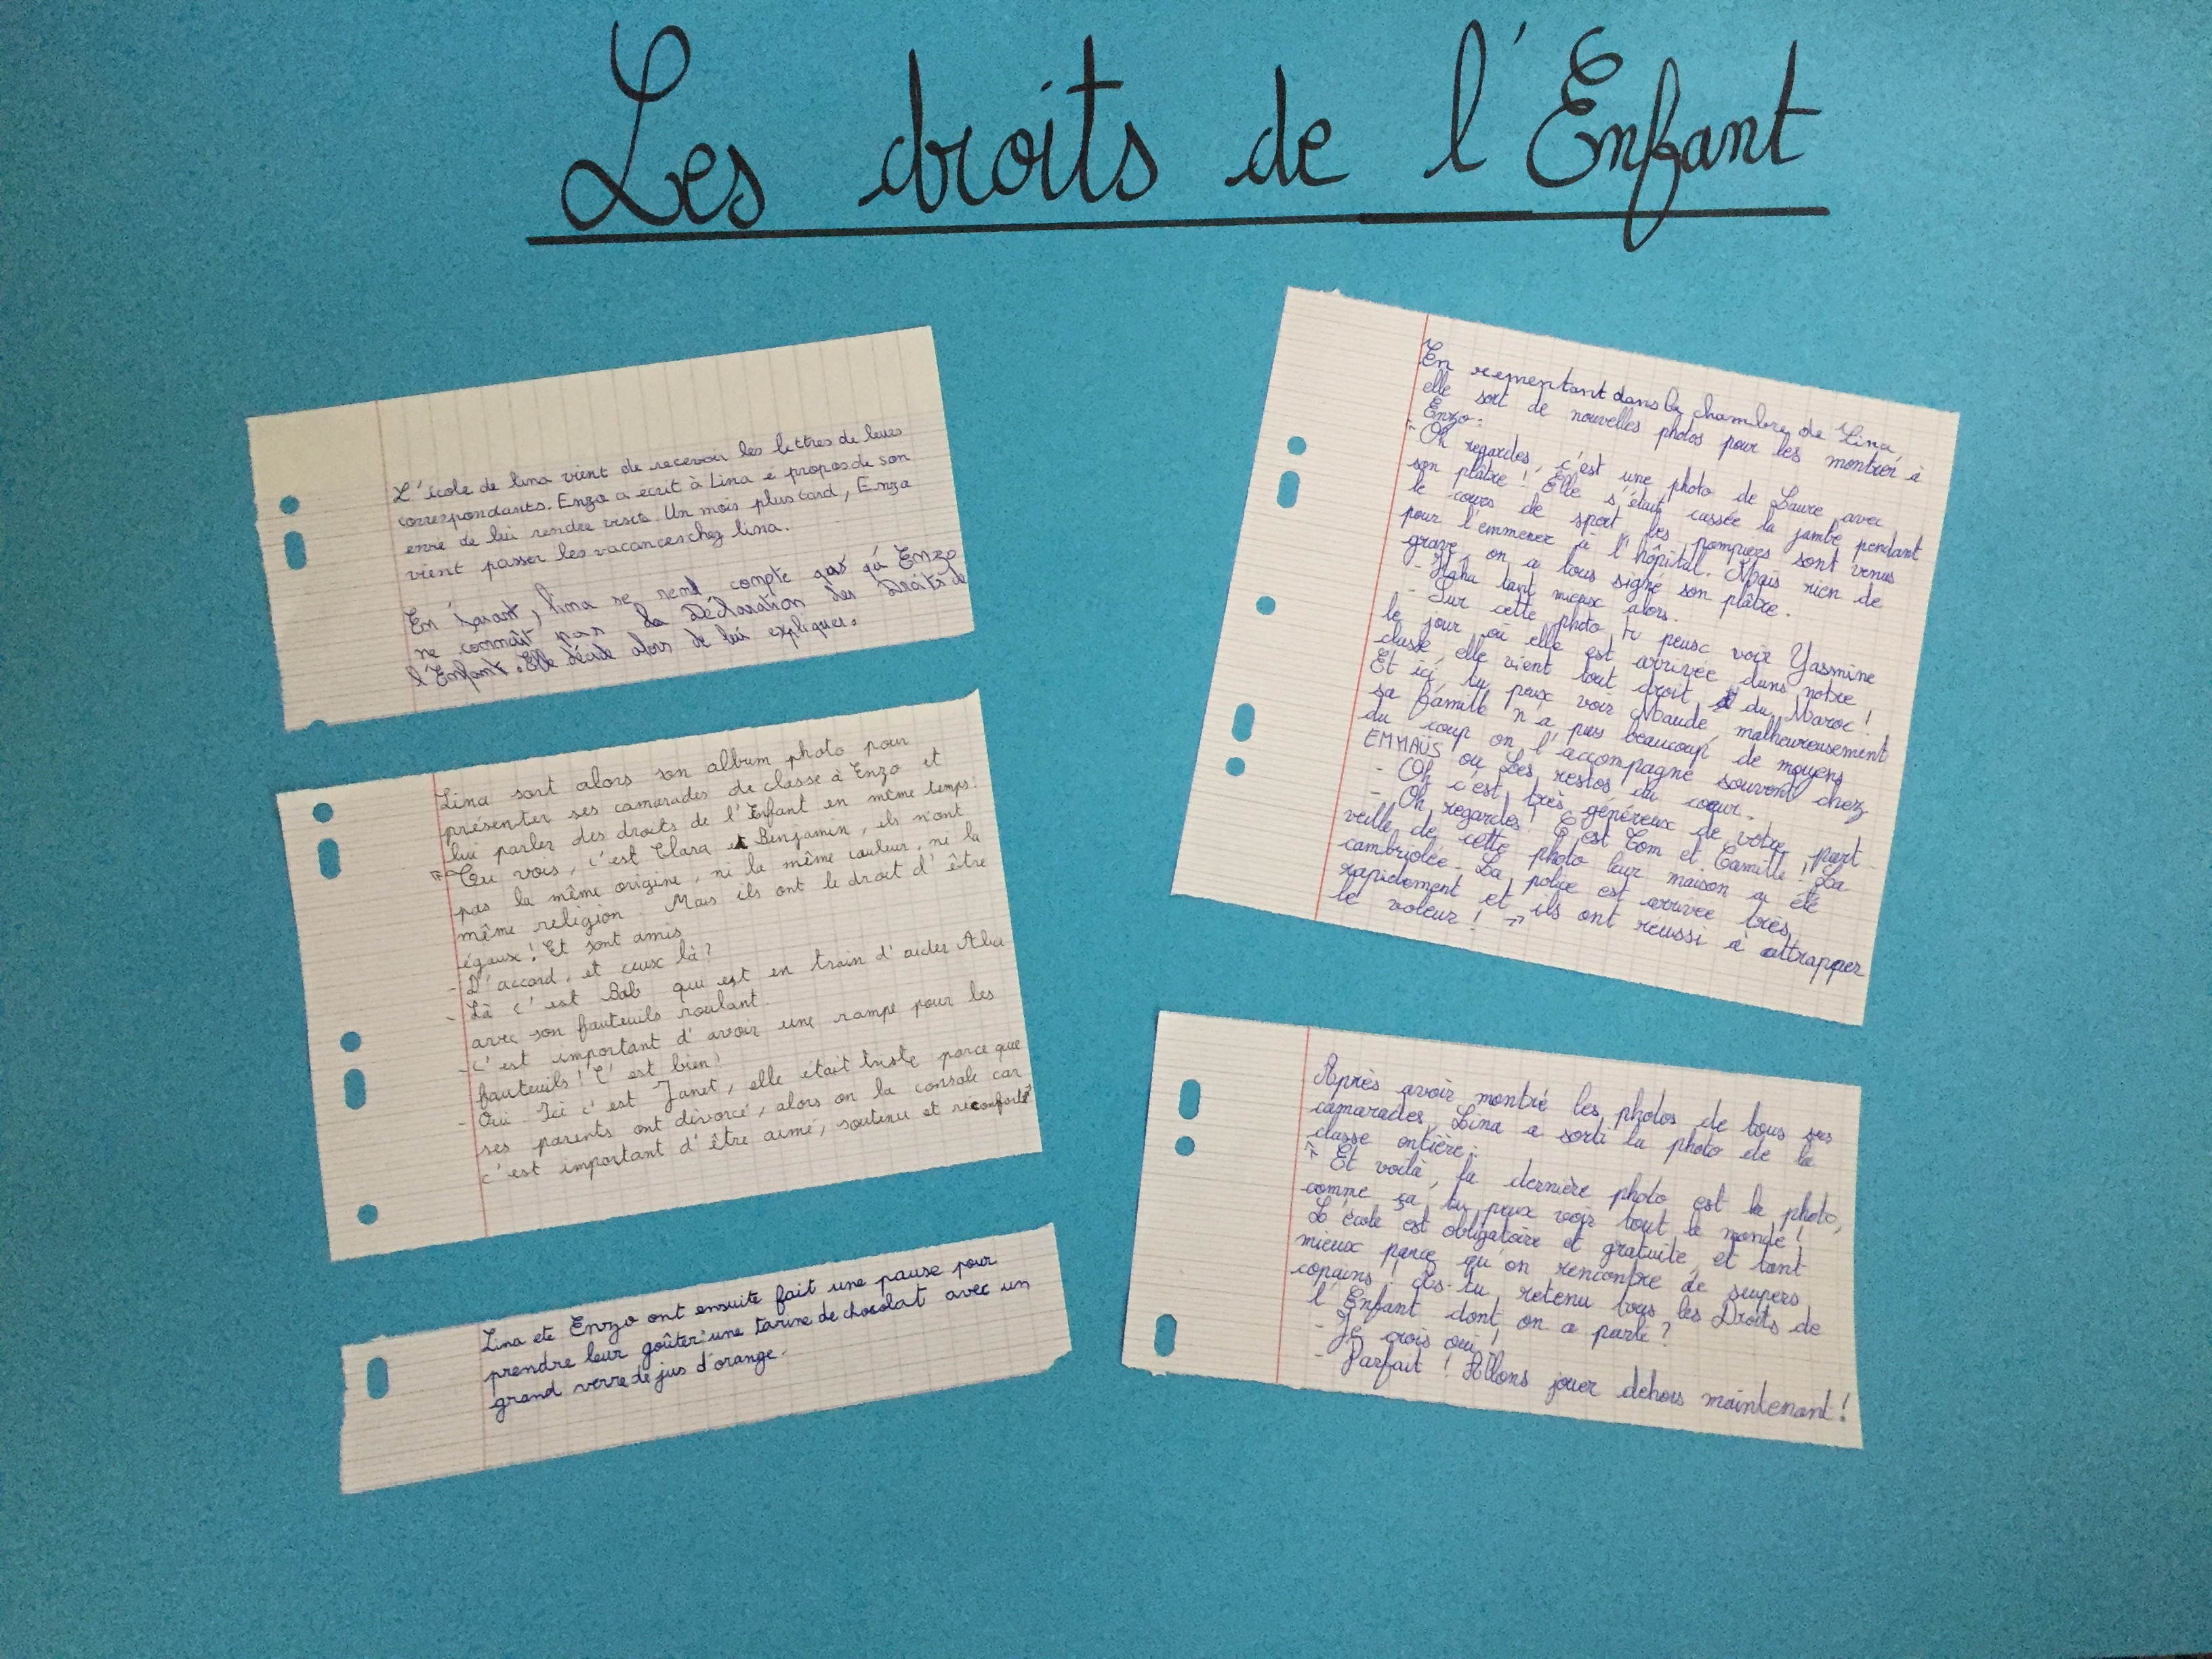 Les droits de l'Enfant
L'école de lina vient de recevoir les lettres de leurs
correspondants. Enzo a écrit à Lina é propos de son
envie de lui rendre visite. Un mois plus tard, Enzo
vient passer les vacances chez lina.
En lisant, lina se rend compte qu'à Enzo
ne connaît pas la Déclaration des Droits de
l'Enfant. Elle décide alors de lui expliquer.
Lina sort alors son album photo pour
présenter ses camarades de classe à Enzo et
lui parler des droits de l'Enfant en même temps.
« Tu vois, c'est Clara et Benjamin, ils n'ont
pas la même origine, ni la même couleur, ni la
même religion. Mais ils ont le droit d'être
égaux ! Et sont amis
- D'accord, et ceux là ?
- Là c'est Bob qui est en train d'aider Alice
avec son fauteuils roulant.
- C'est important d'avoir une rampe pour les
fauteuils ! C'est bien !
- Oui. Ici c'est Janet, elle était triste parce que
ses parents ont divorcé, alors on la console car
c'est important d'être aimé, soutenu et réconforté
Lina ete Enzo ont ensuite fait une pause pour
prendre leur goûter : une tarine de chocolat avec un
grand verre de jus d'orange.
En remontant dans la chambre de Lina,
elle sort de nouvelles photos pour les montrer à
Enzo :
« Oh regardes, c'est une photo de Laure avec
son plâtre ! Elle s'était cassée la jambe pendant
le cours de sport les pompiers sont venus
pour l'emmener à l'hôpital. Mais rien de
grave, on a tous signé son plâtre.
- Haha tant mieux alors.
- Sur cette photo tu peux voir Yasmine
le jour où elle est arrivée dans notre
classe, elle vient tout droit du Maroc !
Et ici, tu peux voir Maude, malheureusement
sa famille n'a pas beaucoup de moyens
du coup on l'accompagne souvent chez
EMMAÜS ou Les restos du cœur.
- Oh c'est très généreux de votre part.
- Oh regardes ! C'est Tom et Camille ! La
veille de cette photo leur maison a été
cambriolée. La police est arrivée très
rapidement et ils ont réussi à attrapper
le voleur ! »
Après avoir montré les photos de tous ses
camarades, Lina a sorti la photo de la
classe entière :
« Et voilà, la dernière photo est la photo,
comme ça tu peux voir tout le monde !
L'école est obligatoire et gratuite, et tant
mieux parce qu'on rencontre de supers
copains ! As-tu retenu tous les Droits de
l'Enfant dont on a parlé ?
- Je crois oui !
- Parfait ! Allons jouer dehors maintenant !